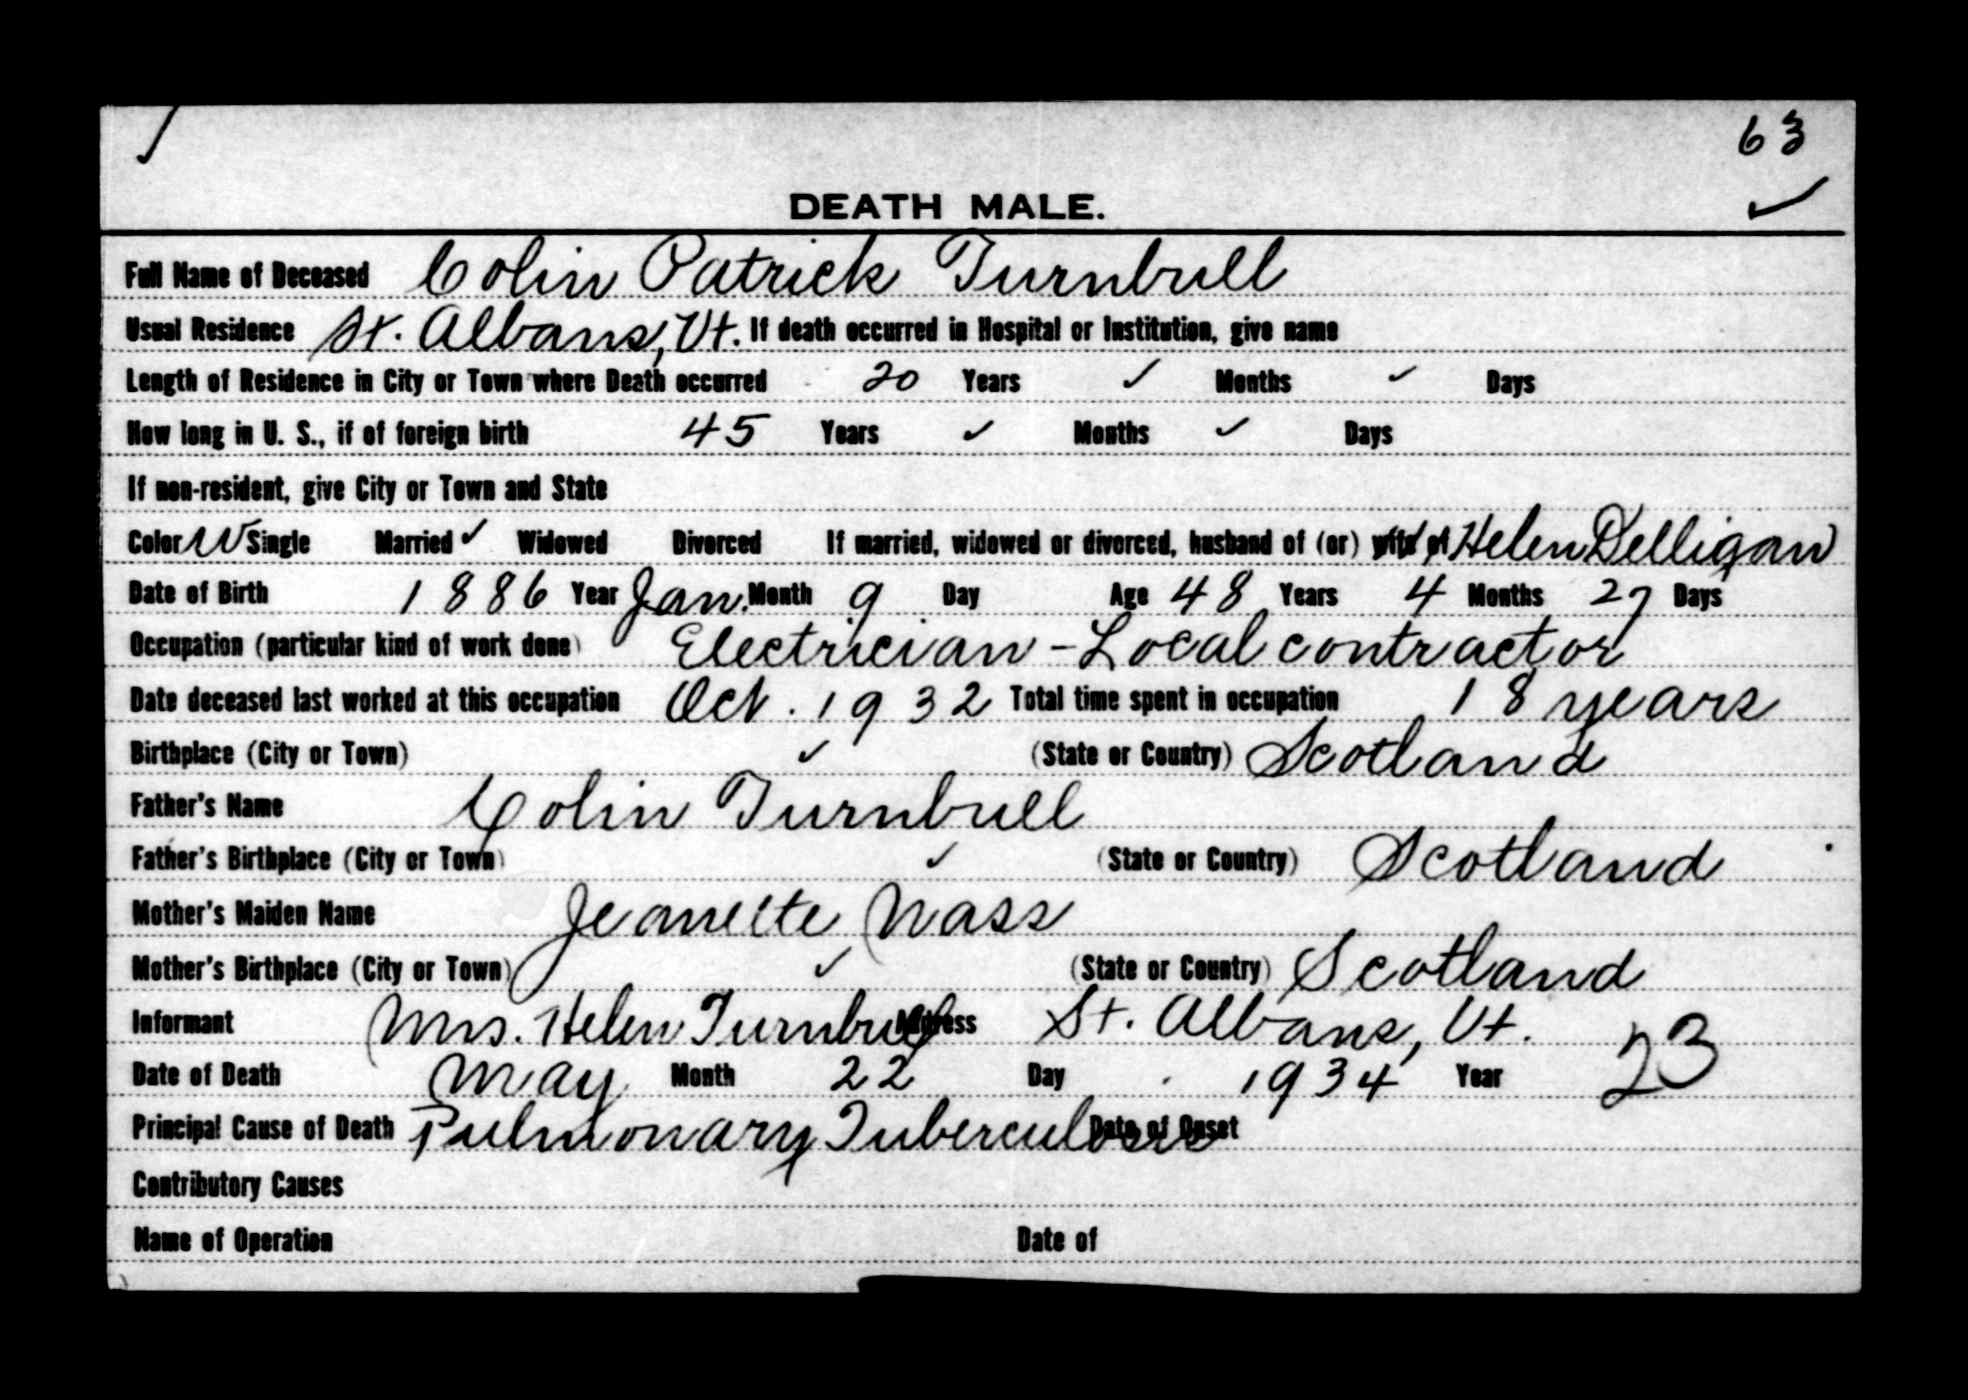 63
DEATH MALE.
Full Name of Deceased Colin Patrick Turnbull
Usual Residence St. Albans, Vt. If death occurred in Hospital or Institution, give name
Length of Residence in City or Town where Death occurred 20 Years ✓ Months ✓ Days
How long in U. S., if of foreign birth 45 Years ✓ Months ✓ Days
If non-resident, give City or Town and State
Color W Single Married ✓ Widowed Divorced If married, widowed or divorced, husband of (or) wife of Helen Delligan
Date of Birth 1886 Year Jan. Month 9 Day Age 48 Years 4 Months 27 Days
Occupation (particular kind of work done) Electrician - Local contractor
Date deceased last worked at this occupation Oct. 1932 Total time spent in occupation 18 years
Birthplace (City or Town) ✓ (State or Country) Scotland
Father's Name Colin Turnbull
Father's Birthplace (City or Town) ✓ (State or Country) Scotland
Mother's Maiden Name Jeanette Nass
Mother's Birthplace (City or Town) ✓ (State or Country) Scotland
Informant Mrs. Helen Turnbull Address St. Albans, Vt.
Date of Death May Month 22 Day 1934 Year 23
Principal Cause of Death Pulmonary Tuberculosis Date of Onset
Contributory Causes
Name of Operation Date of